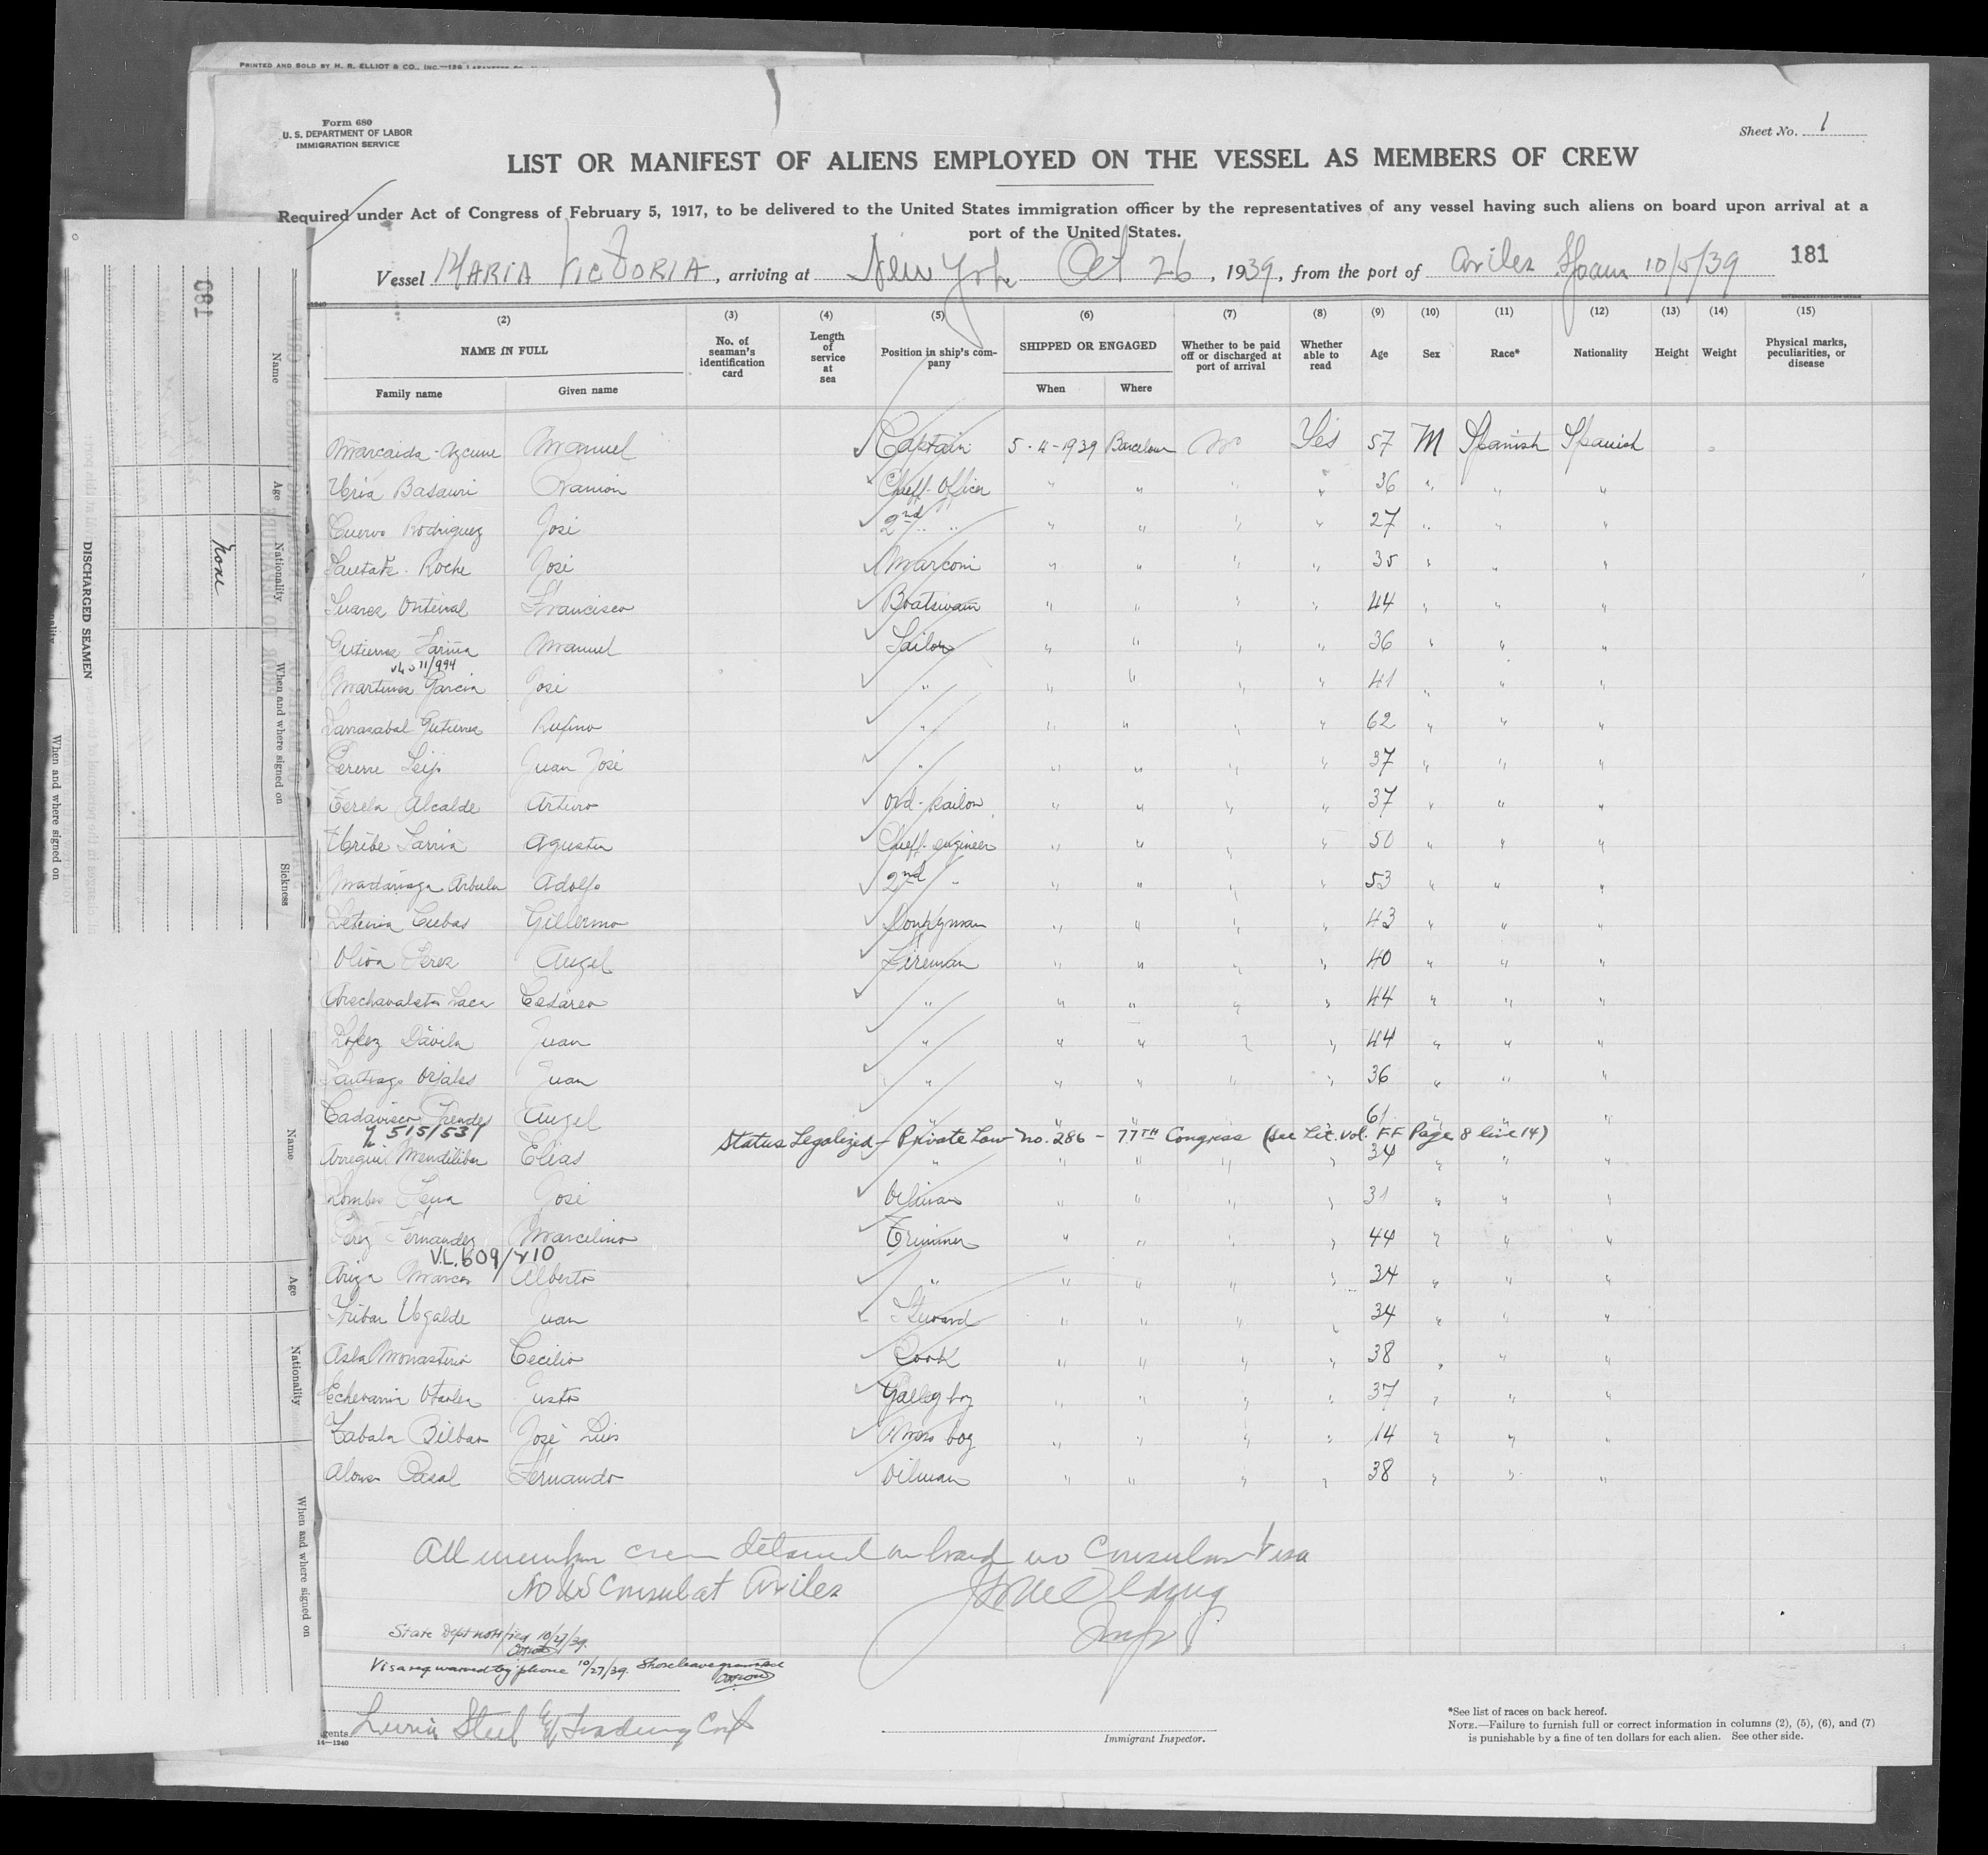 PRINTED AND SOLD BY H. R. ELLIOT & CO., INC.
Form 680
U. S. DEPARTMENT OF LABOR
IMMIGRATION SERVICE
Sheet No. 1
LIST OR MANIFEST OF ALIENS EMPLOYED ON THE VESSEL AS MEMBERS OF CREW
Required under Act of Congress of February 5, 1917, to be delivered to the United States immigration officer by the representatives of any vessel having such aliens on board upon arrival at a
port of the United States.
Vessel MARIA VICTORIA, arriving at New York Oct 26, 1939, from the port of Aviles Spain 10/5/39 181
(2) (3) (4) (5) (6) (7) (8) (9) (10) (11) (12) (13) (14) (15)
NAME IN FULL No. of seaman's identification card Length of service at sea Position in ship's company SHIPPED OR ENGAGED Whether to be paid off or discharged at port of arrival Whether able to read Age Sex Race* Nationality Height Weight Physical marks, peculiarities, or disease
Family name Given name When Where
Marcaida - Azcune Manuel Captain 5-4-1939 Barcelona No Yes 57 M Spanish Spanish
Uria Basauri Ramon Chieff-Officer " " " " 36 " " "
Cuervo Rodriguez José 2nd " " " " " 27 " " "
Roche José Marconi " " " " 35 " " "
Suarez Francisco Boatswain " " " " 44 " " "
Gutierrez Fariña Manuel Sailor " " " " 36 " " "
Martinez Garcia José " " " " " 41 " " "
Larrasabal Gutierrez Rufino " " " " " 62 " " "
Juan José " " " " " 37 " " "
Alcalde Arturo Ord-sailor " " " " 37 " " "
Uribe Larrin Agustin Chieff-engineer " " " " 50 " " "
Madariaga Arbula Adolfo 2nd " " " " " 53 " " "
Cubas Gillermo Donkyman " " " " 43 " " "
Oliva Perez Angel Fireman " " " " 40 " " "
Arechavaleta Laca Cesáreo " " " " " 44 " " "
Lopez Dávila Juan " " " " " 44 " " "
Santiago Orjales Juan " " " " " 36 " " "
Cadavieco Angel " " " " " 61 " " "
515/531 Status Legalized - Private Law No. 286 - 77TH Congress (see Lit. Vol. FF Page 8 line 14)
Arregui Mendiliber Elias " " " " " 34 " " "
Lombo Pena José Oilman " " " " 31 " " "
Perez Fernandez Marcelino Trimmer " " " " 44 " " "
V.L. 609/210
Ariza Marcos Alberto " " " " " 34 " " "
Iribar Ugalde Juan Steward " " " " 34 " " "
Asla Monasterio Cecilio Cook " " " " 38 " " "
Echevarria Justo Galleg boy " " " " 37 " " "
Zabala Bilbao José Luis Mess boy " " " " 14 " " "
Alonso Pasal Fernando Oilman " " " " 38 " " "
All member crew detained on board no Consular Visa
No US Consul at Aviles
State Dept notified 10/27/39.
Visa req. warned by phone 10/27/39. Shore leave granted
Agents Luria Steel & Trading Corp
14—1240
Immigrant Inspector.
*See list of races on back hereof.
NOTE.—Failure to furnish full or correct information in columns (2), (5), (6), and (7)
is punishable by a fine of ten dollars for each alien. See other side.
180
Name
Age
Nationality
When and where signed on
Sickness
None
DISCHARGED SEAMEN
When and where signed on
Name
Age
Nationality
When and where signed on